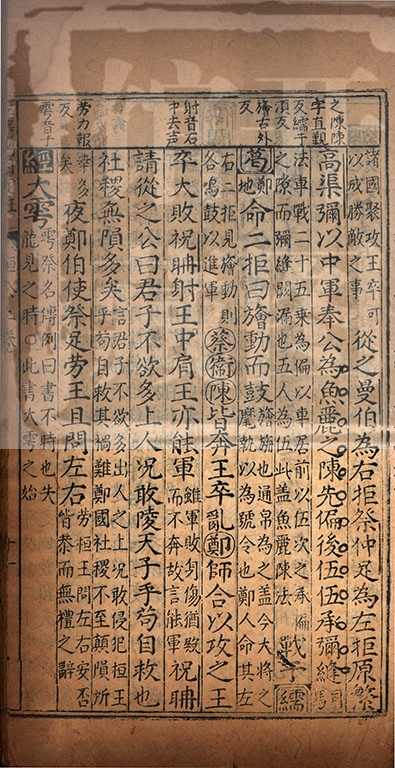 之陳陳
字直覲
反繻于
須反
旝古外
反
射音石
中去声
勞力報
反
雩音于
諸國聚攻王卒可以成勝敵之事從之曼伯為右拒祭仲足為左拒原繁
高渠彌以中軍奉公為魚麗之陳先偏後伍伍承彌縫司馬
法車戰二十五乘為偏以車居前以伍次之承偏之隙而彌縫闕漏也五人為伍此蓋魚麗陳法戰于繻
葛鄭地命二拒曰旝動而鼓旝旃也通帛為之蓋今大將之麾執以為號令也鄭人命其左
右二拒見旝動則各鳴鼓以進軍蔡衞陳皆奔王卒亂鄭師合以攻之王
卒大敗祝聃射王中肩王亦能軍雖軍敗身傷猶殿而不奔故言能軍祝聃
請從之公曰君子不欲多上人况敢陵天子乎苟自救也
社稷無隕多矣言君子不欲多出人之上况敢侵犯桓王乎苟自救其禍難鄭國社稷不至顛隕所
幸多矣夜鄭伯使祭足勞王且問左右勞桓王問左右安否皆恭而無禮之辭
經大雩雩祭名傳例曰書不時也失龍見之時○此書大雩之始